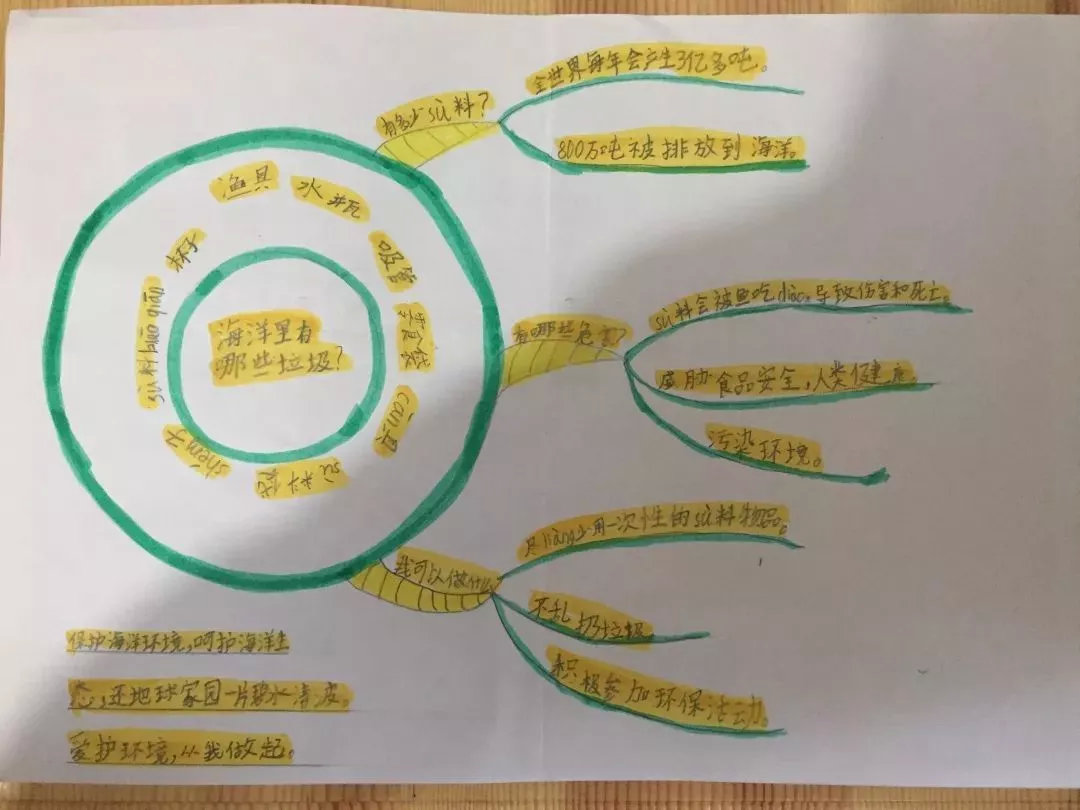 海洋里有
哪些垃圾？
渔具
水瓶
吸管
零食袋
cān具
sù料袋
子
sù料biāo qiān
杯子
有多少sù料？
全世界每年会产生3亿多吨。
800万吨被排放到海洋。
有哪些危害？
sù料会被鱼吃diào，导致伤害和死亡。
威胁食品安全，人类健康
污染环境。
尽liàng少用一次性的sù料物品。
我可以做什么
不乱扔垃圾
积极参加环保活动。
保护海洋环境，呵护海洋生
态，还地球家园一片碧水清波。
爱护环境，从我做起。